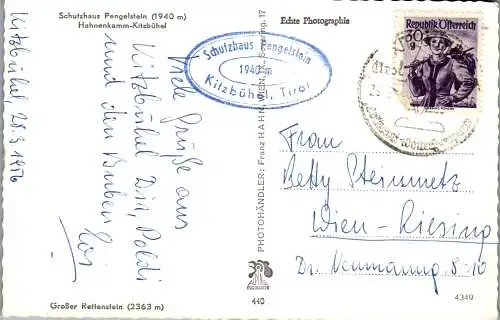 Schutzhaus Pengelstein (1940 m)
Hahnenkamm-Kitzbühel
Echte Photographie
Schutzhaus Pengelstein
1940 m
Kitzbühel, Tirol
30g
Republik Österreich
Kitzbühel 28.3.1956
Viele Grüße aus
Kitzbühel Dir, Poldi
und den Buben
PHOTOHÄNDLER: Franz HAHN, WIEN, Severing. 17
Frau
Betty Steinmetz
Wien-Liesing
Dr. Neumanng. 8-10
Großer Rettenstein (2363 m)
440
4340